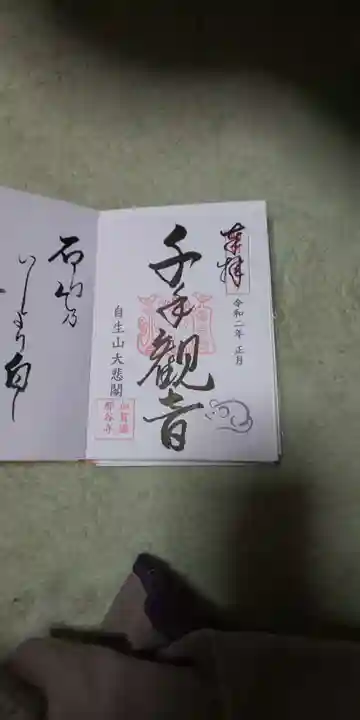 奉拝
令和二年 正月
千手觀音
自生山大悲閣
加賀國
那谷寺
石山乃
いしより白し